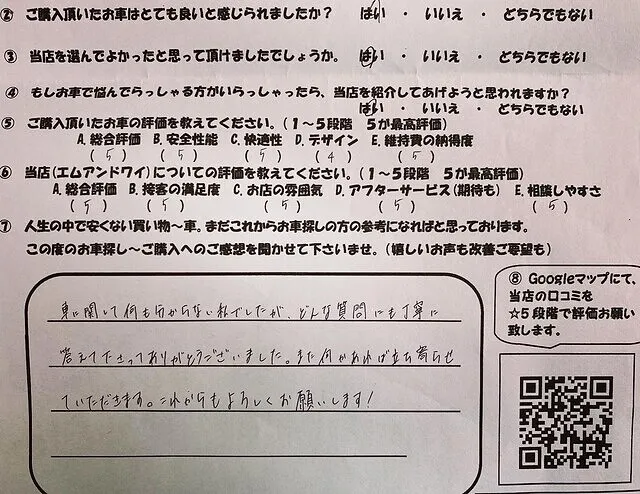 ② ご購入頂いたお車はとても良いと感じられましたか？ はい ・ いいえ ・ どちらでもない
③ 当店を選んでよかったと思って頂けましたでしょうか。 はい ・ いいえ ・ どちらでもない
④ もしお車で悩んでらっしゃる方がいらっしゃったら、当店を紹介してあげようと思われますか？
はい ・ いいえ ・ どちらでもない
⑤ ご購入頂いたお車の評価を教えてください。（１～５段階 ５が最高評価）
A. 総合評価 B. 安全性能 C. 快適性 D. デザイン E. 維持費の納得度
( 5 ) ( 5 ) ( 5 ) ( 4 ) ( 5 )
⑥ 当店（エムアンドワイ）についての評価を教えてください。（１～５段階 ５が最高評価）
A. 総合評価 B. 接客の満足度 C. お店の雰囲気 D. アフターサービス（期待も） E. 相談しやすさ
( 5 ) ( 5 ) ( 5 ) ( 5 ) ( 5 )
⑦ 人生の中で安くない買い物～車。まだこれからお車探しの方の参考になればと思っております。
この度のお車探し～ご購入へのご感想を聞かせて下さいませ。（嬉しいお声も改善ご要望も）
車に関して何も分からない私でしたが、どんな質問にも丁寧に
答えて下さってありがとうございました。また何かあれば立ち寄らせ
ていただきます。これからもよろしくお願いします！
⑧ Googleマップにて、
当店の口コミを
☆５段階で評価お願い
致します。